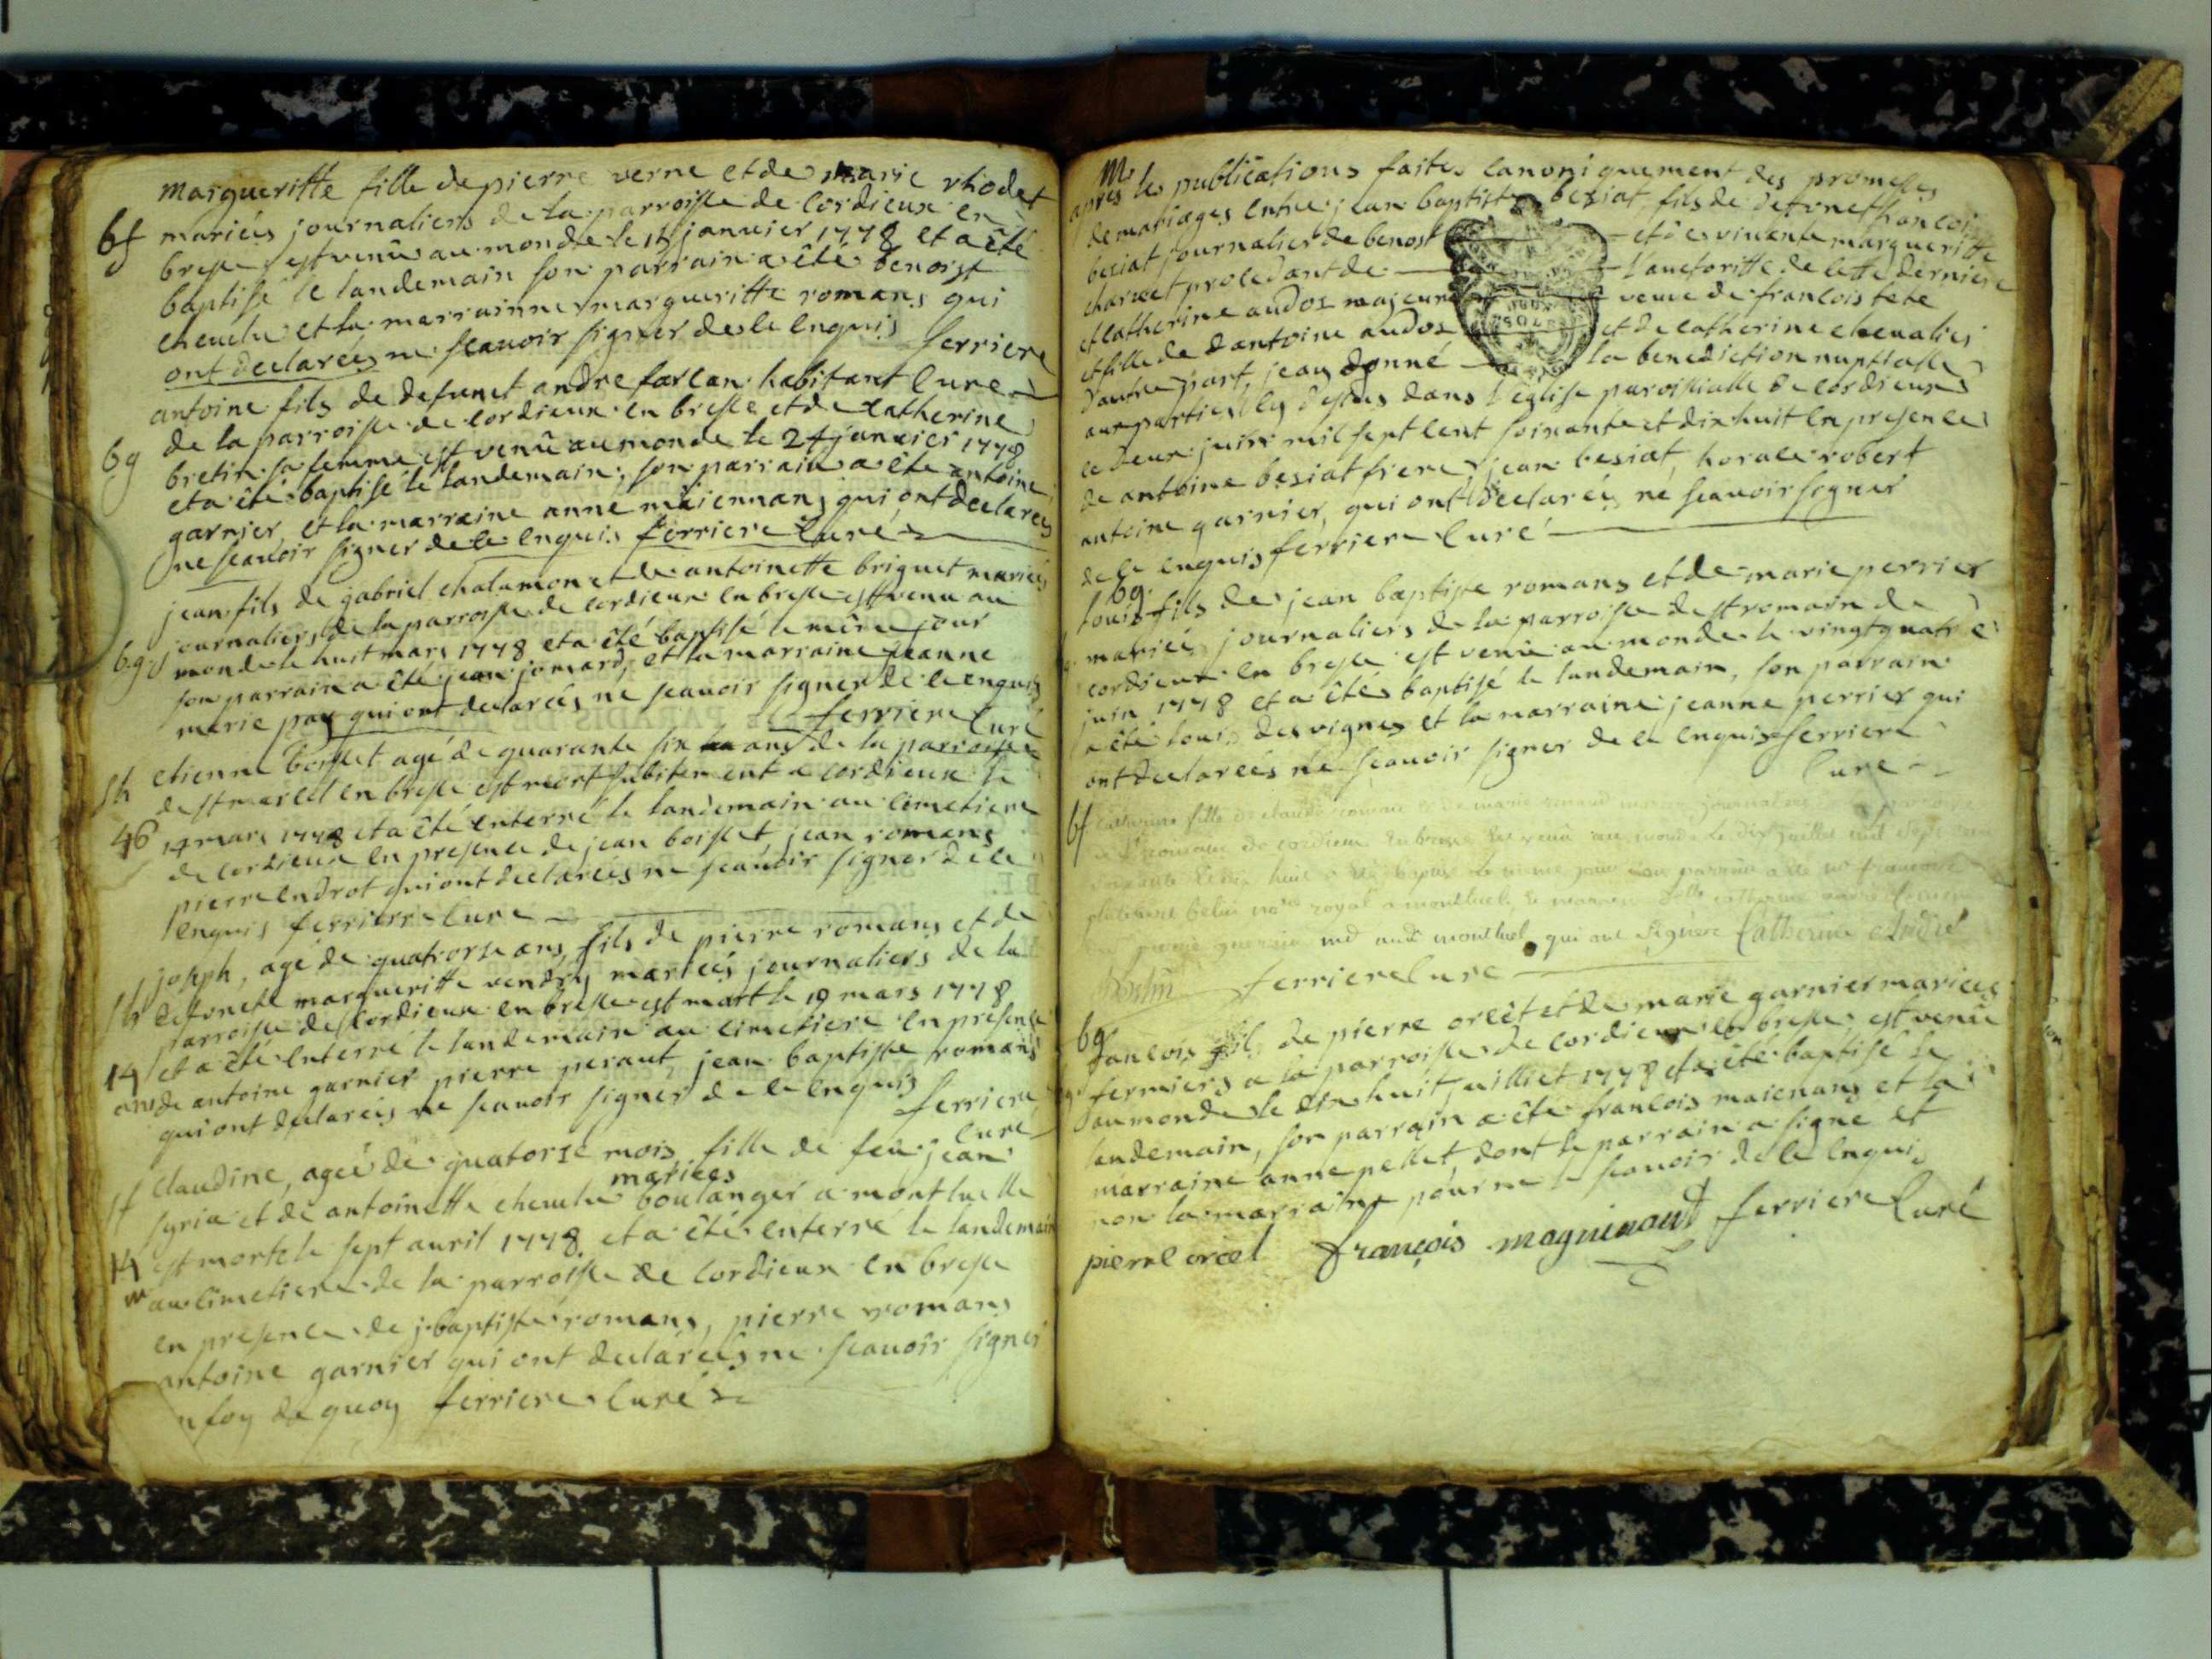 margueritte fille de pierre verne et de marie rhodet
bf mariés journaliers de la parroisse de cordieux en
bresse est venû au monde le 15 janvier 1778 et a êté
baptisé le landemain son parrain a êté benoist
cheuelu et la marrainne margueritte romans qui
ont declareés ne scauoir signer de ce enquis ferriere
curé
antoine fils de defunct andre farlan habitant
bg de la parroisse de cordieux en bresse et de catherine
bretin sa femme est venû au monde le 24 janvier 1778
et a êté baptisé le landemain, son parrain a êté antoine
garnier et la marraine anne maiennans qui ont declareés
ne scauoir signer de ce enquis ferriere curé
jean fils de gabriel chalamon et de antoinette briguet mariés
journaliers de la parroisse de cordieux en bresse est venu au
bg monde le huit mars 1778 et a êté baptisé le mème jour
son parrain a êté jean jomard, et la marraine jeanne
marie pay qui ont declareés ne scauoir signer de ce enquis
ferriere curé
sh etienne boisset agé de quarante six ans de la parroisse
de st marcel en bresse est mort subitement a cordieux le
46 14 mars 1778 et a êté enterré le landemain au cimetiere
de cordieux en presence de jean boisset jean romans
pierre endrot qui ont declareés ne scauoir signer de ce
enquis ferriere cure
sh joseph, agé de quatorse ans, fils de pierre romans et de
defuncte margueritte vendry mariés journaliers de la
parroisse de cordieux en bresse est mort le 19 mars 1778
14 et a êté enterré le landemain au cimetiere en presence
ans de antoine garnier pierre peraut, jean baptiste romans
qui ont declareés ne scauoir signer de ce enquis
ferriere
curé
sf claudine, ageé de quatorse mois fille de feu jean
mariees
syria et de antoinette cheuelu boulanger a montluelle
14 est morte le sept auril 1778 et a êté enterré le landemain
m au cimetiere de la parroisse de cordieux en bresse
en presence de j baptiste romans, pierre romans
antoine garnier qui ont declareés ne scauoir signer
en foy de quoy ferriere curé
M
apres les publications faites canoniquement des promesses
de mariages entre jean baptiste besiat fils de defunct francois
besiat journalier de benost et de viuante margueritte
charvet procedant de l'auctoritte de cette derniere
et catherine audos majeure veuve de francois tete
et fille de d'antoine audos et de catherine cheualier
d'autre part, jeay donné la benediction nuptialle
aux parties cy dessus dans l'église paroissialle de cordieux
le deux juin mil sept cent soixante et dix huit en presence
de antoine besiat frere, jean besiat, horace robert
antoine garnier, qui ont declareés ne scauoir signer
de ce enquis ferriere curé
bg
louis fils de jean baptiste romans et de marie perrier
mariés journaliers de la parroisse de st romain de
cordieux en bresse est venû au monde le vingt quatre
juin 1778 et a êtés baptisé le landemain, son parrain
a êté louis desvignes et la marraine jeanne perrier qui
ont declareés ne scauoir signer de ce enquis ferriere
cure
bf catherine fille de claude romans et de marie journaliers
de st romain de cordieux en bresse est venu au monde le dix juillet mil sept cent
soixante et dix huit a été baptisé le meme jour son parrain a été françois
belin royal a montluel, la marraine catherine andré
md audt montluel qui ont signere Catherine André
Belin ferriere cure
bg
francois fils de pierre orcêt et de marie garnier mariees
fermiers a la parroisse de cordieux en bresse, est venû
au monde le dix huit juilliet 1778 et a êté baptisé le
landemain, son parrain a êté francois maienans et la
marraine anne pellet, dont le parrain a signé et
non la marraine pour ne le scauoir de ce enquis
pierre orcel françois magnienant ferriere curé